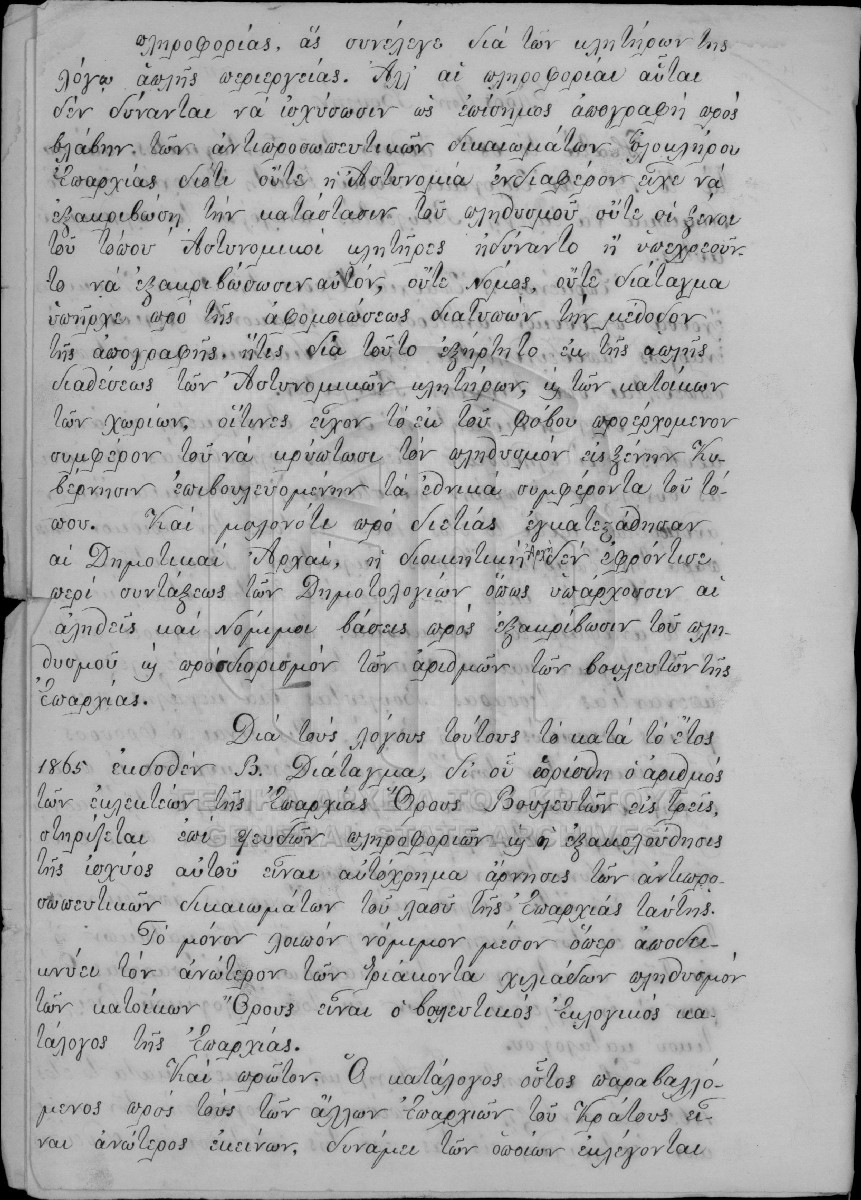 πληροφορίας, ἅς συνέλεγε διά τῶν κλητήρων της
λόγῳ ἁπλῆς περιεργείας. Ἀλλ' αἱ πληροφορίαι αὗται
δέν δύνανται νά ἰσχύσωσιν ὡς ἐπίσημος ἀπογραφή πρός
βλάβην τῶν ἀντιπροσωπευτικῶν δικαιωμάτων ὁλοκλήρου
Ἐπαρχίας διότι οὔτε ἡ Ἀστυνομία ἐνδιαφέρον εἶχε νά
ἐξακριβώσῃ τήν κατάστασιν τοῦ πληθυσμοῦ οὔτε οἱ ξένοι
τοῦ τόπου Ἀστυνομικοί κλητῆρες ἠδύναντο ἤ ὑπεχρεοῦν-
το νά ἐξακριβώσωσιν αὐτόν, οὔτε Νόμος, οὔτε διάταγμα
ὑπῆρχε πρό τῆς ἀφομοιώσεως διατυπῶν τήν μέθοδον
τῆς ἀπογραφῆς, ἥτις διά τοῦτο ἐξήρτητο ἐκ τῆς ἁπλῆς
διαθέσεως τῶν Ἀστυνομικῶν κλητήρων, ϗ τῶν κατοίκων
τῶν χωρίων, οἵτινες εἶχον τό ἐκ τοῦ φόβου προερχόμενον
συμφέρον τοῦ νά κρύπτωσι τόν πληθυσμόν εἰς ξένην Κυ-
βέρνησιν ἐπιβουλευομένην τά ἐθνικά συμφέροντα τοῦ τό-
που. Καί μολονότι πρό διετίας ἐγκατεστάθησαν
αἱ Δημοτικαί Ἀρχαί, ἡ διοικητική Ἀρχή δέν ἐφρόντισε
περί συντάξεως τῶν Δημοτολογίων ὅπως ὑπάρχουσιν αἱ
ἀληθεῖς καί νόμιμοι βάσεις πρός ἐξακρίβωσιν τοῦ πλη-
θυσμοῦ ϗ πρόσδιορισμόν τῶν ἀριθμῶν τῶν βουλευτῶν τῆς
Ἐπαρχίας.
Διά τούς λόγους τούτους τό κατά τό ἔτος
1865 ἐκδοθέν Β. Διάταγμα, δι' οὗ ὡρίσθη ὁ ἀριθμός
τῶν ἐκλεκτέων τῆς Ἐπαρχίας Ὄρους Βουλευτῶν εἰς τρεῖς,
στηρίζεται ἐπί ψευδῶν πληροφοριῶν ϗ ἡ ἐξακολούθησις
τῆς ἰσχύος αὐτοῦ εἶναι αὐτόχρημα ἄρνησις τῶν ἀντιπρο-
σωπευτικῶν δικαιωμάτων τοῦ λαοῦ τῆς Ἐπαρχίας ταύτης.
Τό μόνον λοιπόν νόμιμον μέσον ὅπερ ἀποδει-
κνύει τόν ἀνώτερον τῶν τριάκοντα χιλιάδων πληθυσμόν
τῶν κατοίκων Ὄρους εἶναι ὁ βουλευτικός ἐκλογικός κα-
τάλογος τῆς Ἐπαρχίας.
Καί πρῶτον. Ὁ κατάλογος οὗτος παραβαλλό-
μενος πρός τούς τῶν ἄλλων Ἐπαρχιῶν τοῦ Κράτους εἶ-
ναι ἀνώτερος ἐκείνων, δυνάμει τῶν ὁποίων ἐκλέγονται
ΓΕΝΙΚΑ ΑΡΧΕΙΑ ΤΟΥ ΚΡΑΤΟΥΣ
GENERAL STATE ARCHIVES